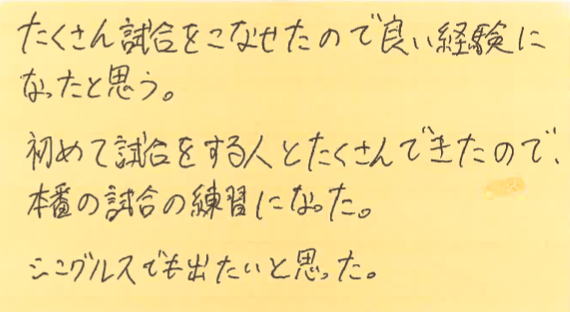 たくさん試合をこなせたので良い経験に
なったと思う。
初めて試合をする人とたくさんできたので、
本番の試合の練習になった。
シングルスでも出たいと思った。